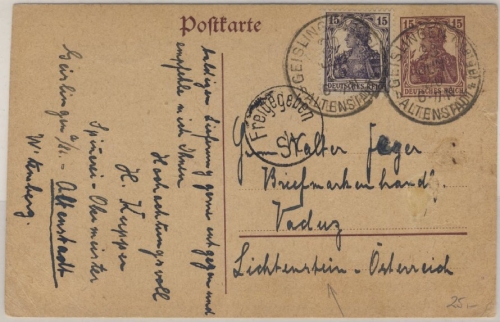 Postkarte
15 15
DEUTSCHES REICH
15 15
DEUTSCHES REICH
GEISLINGEN
ALTENSTADT
GEISLINGEN
ALTENSTADT
Freigegeben
Herrn Walter Jager
Briefmarkenhandl.
Vaduz
Lichtenstein-Österreich
baldigen Lieferung gerne entgegen und
empfehle mich Ihnen
Hochachtungsvoll
H. Kupper
Spinerei-Obermeister
Geislingen
Altenstadt
Württemberg.
25.-